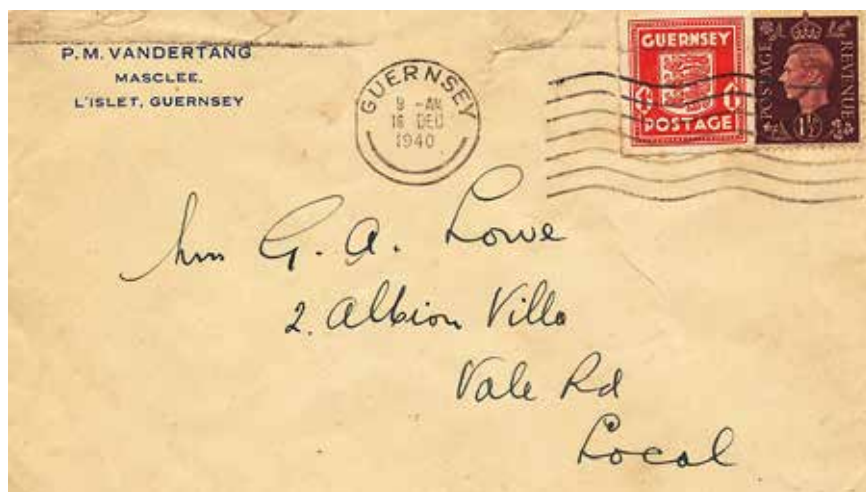 P.M. VANDERTANG
MASCLEE.
L'ISLET, GUERNSEY
GUERNSEY
9 - AM
16 DEC
1940
GUERNSEY
1 1
POSTAGE
POSTAGE REVENUE
1½
Mrs G. A. Lowe
2. Albion Villa
Vale Rd
Local